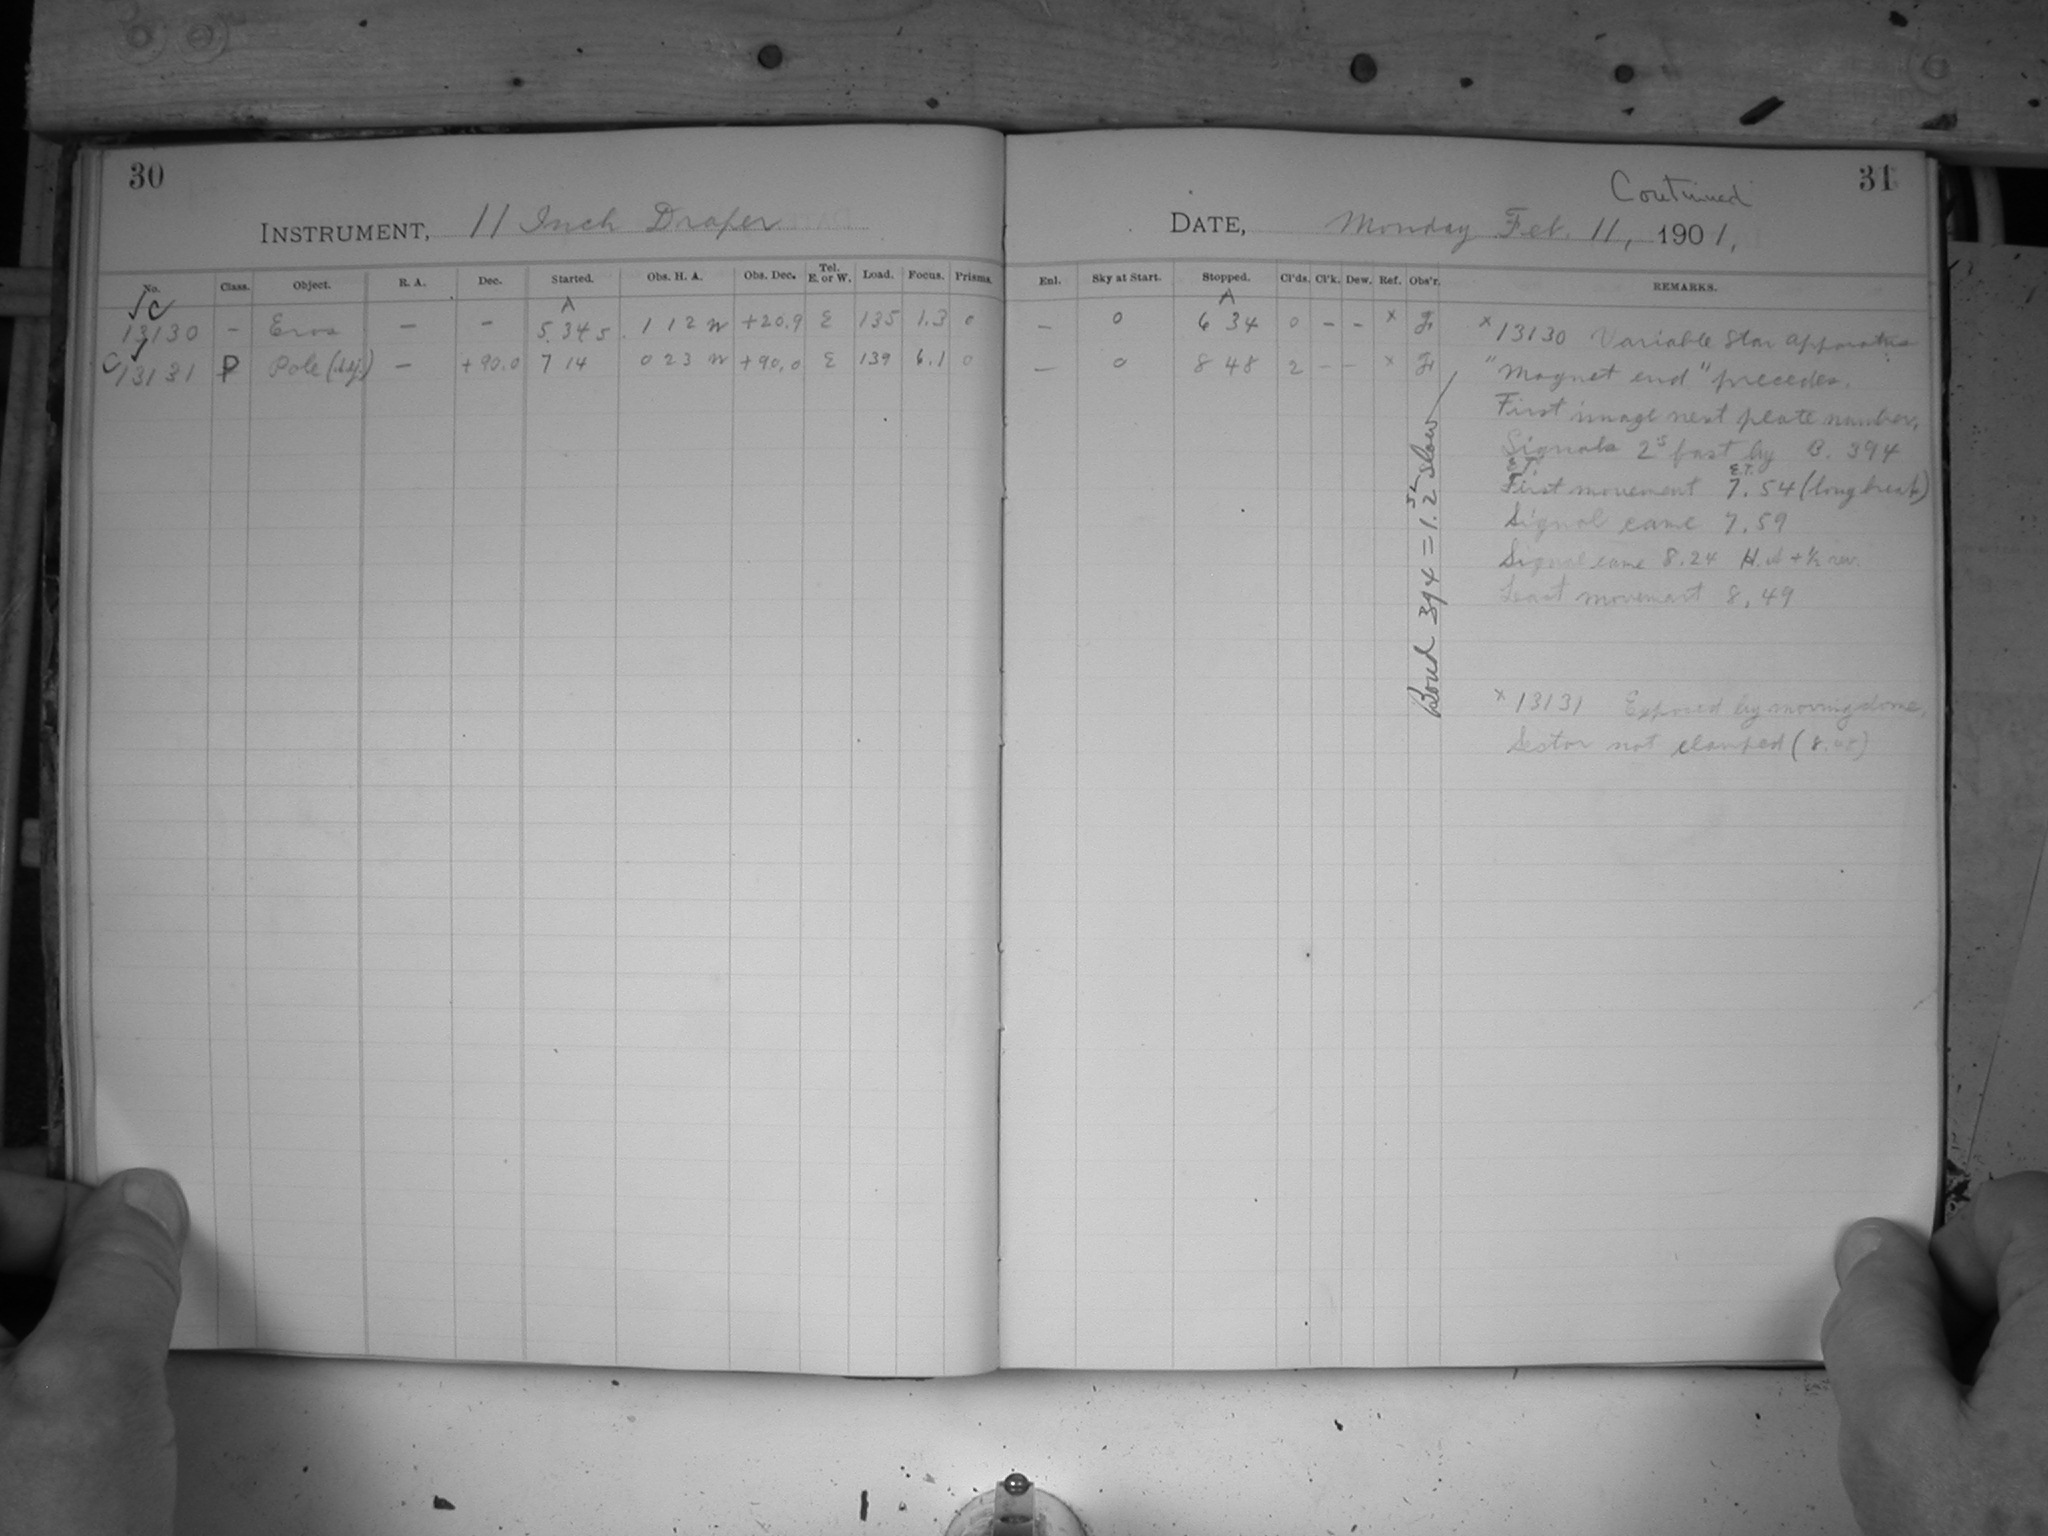 30
INSTRUMENT, 11 Inch Draper
No. Class. Object. R. A. Dec. Started. Obs. H. A. Obs. Dec. Tel. E. or W. Load. Focus. Prisms.
A
13130 - Eros - - 5.34 5 1 12 W +20.9 E 135 1.3 0
13131 P Pole - +90.0 7 14 0 23 W +90.0 E 139 6.1 0
31
Continued
DATE, Monday Feb. 11, 1901,
Enl. Sky at Start. Stopped. Cl'ds. Cl'k. Dew. Ref. Obs'r. REMARKS.
A
- 0 6 34 0 - - x
- 0 8 48 2 - - x
x 13130 Variable Star apparatus
"Magnet end" precedes.
First image next plate number.
Signals 2s fast by B. 394
E.T.
First movement 7.54 (long break)
Signal came 7.59
Signal came 8.24 + ½ rev.
Last movement 8.49
Bond 394 = 1.2 slow
x 13131 Exposed by moving dome.
Sector not clamped (8.48)